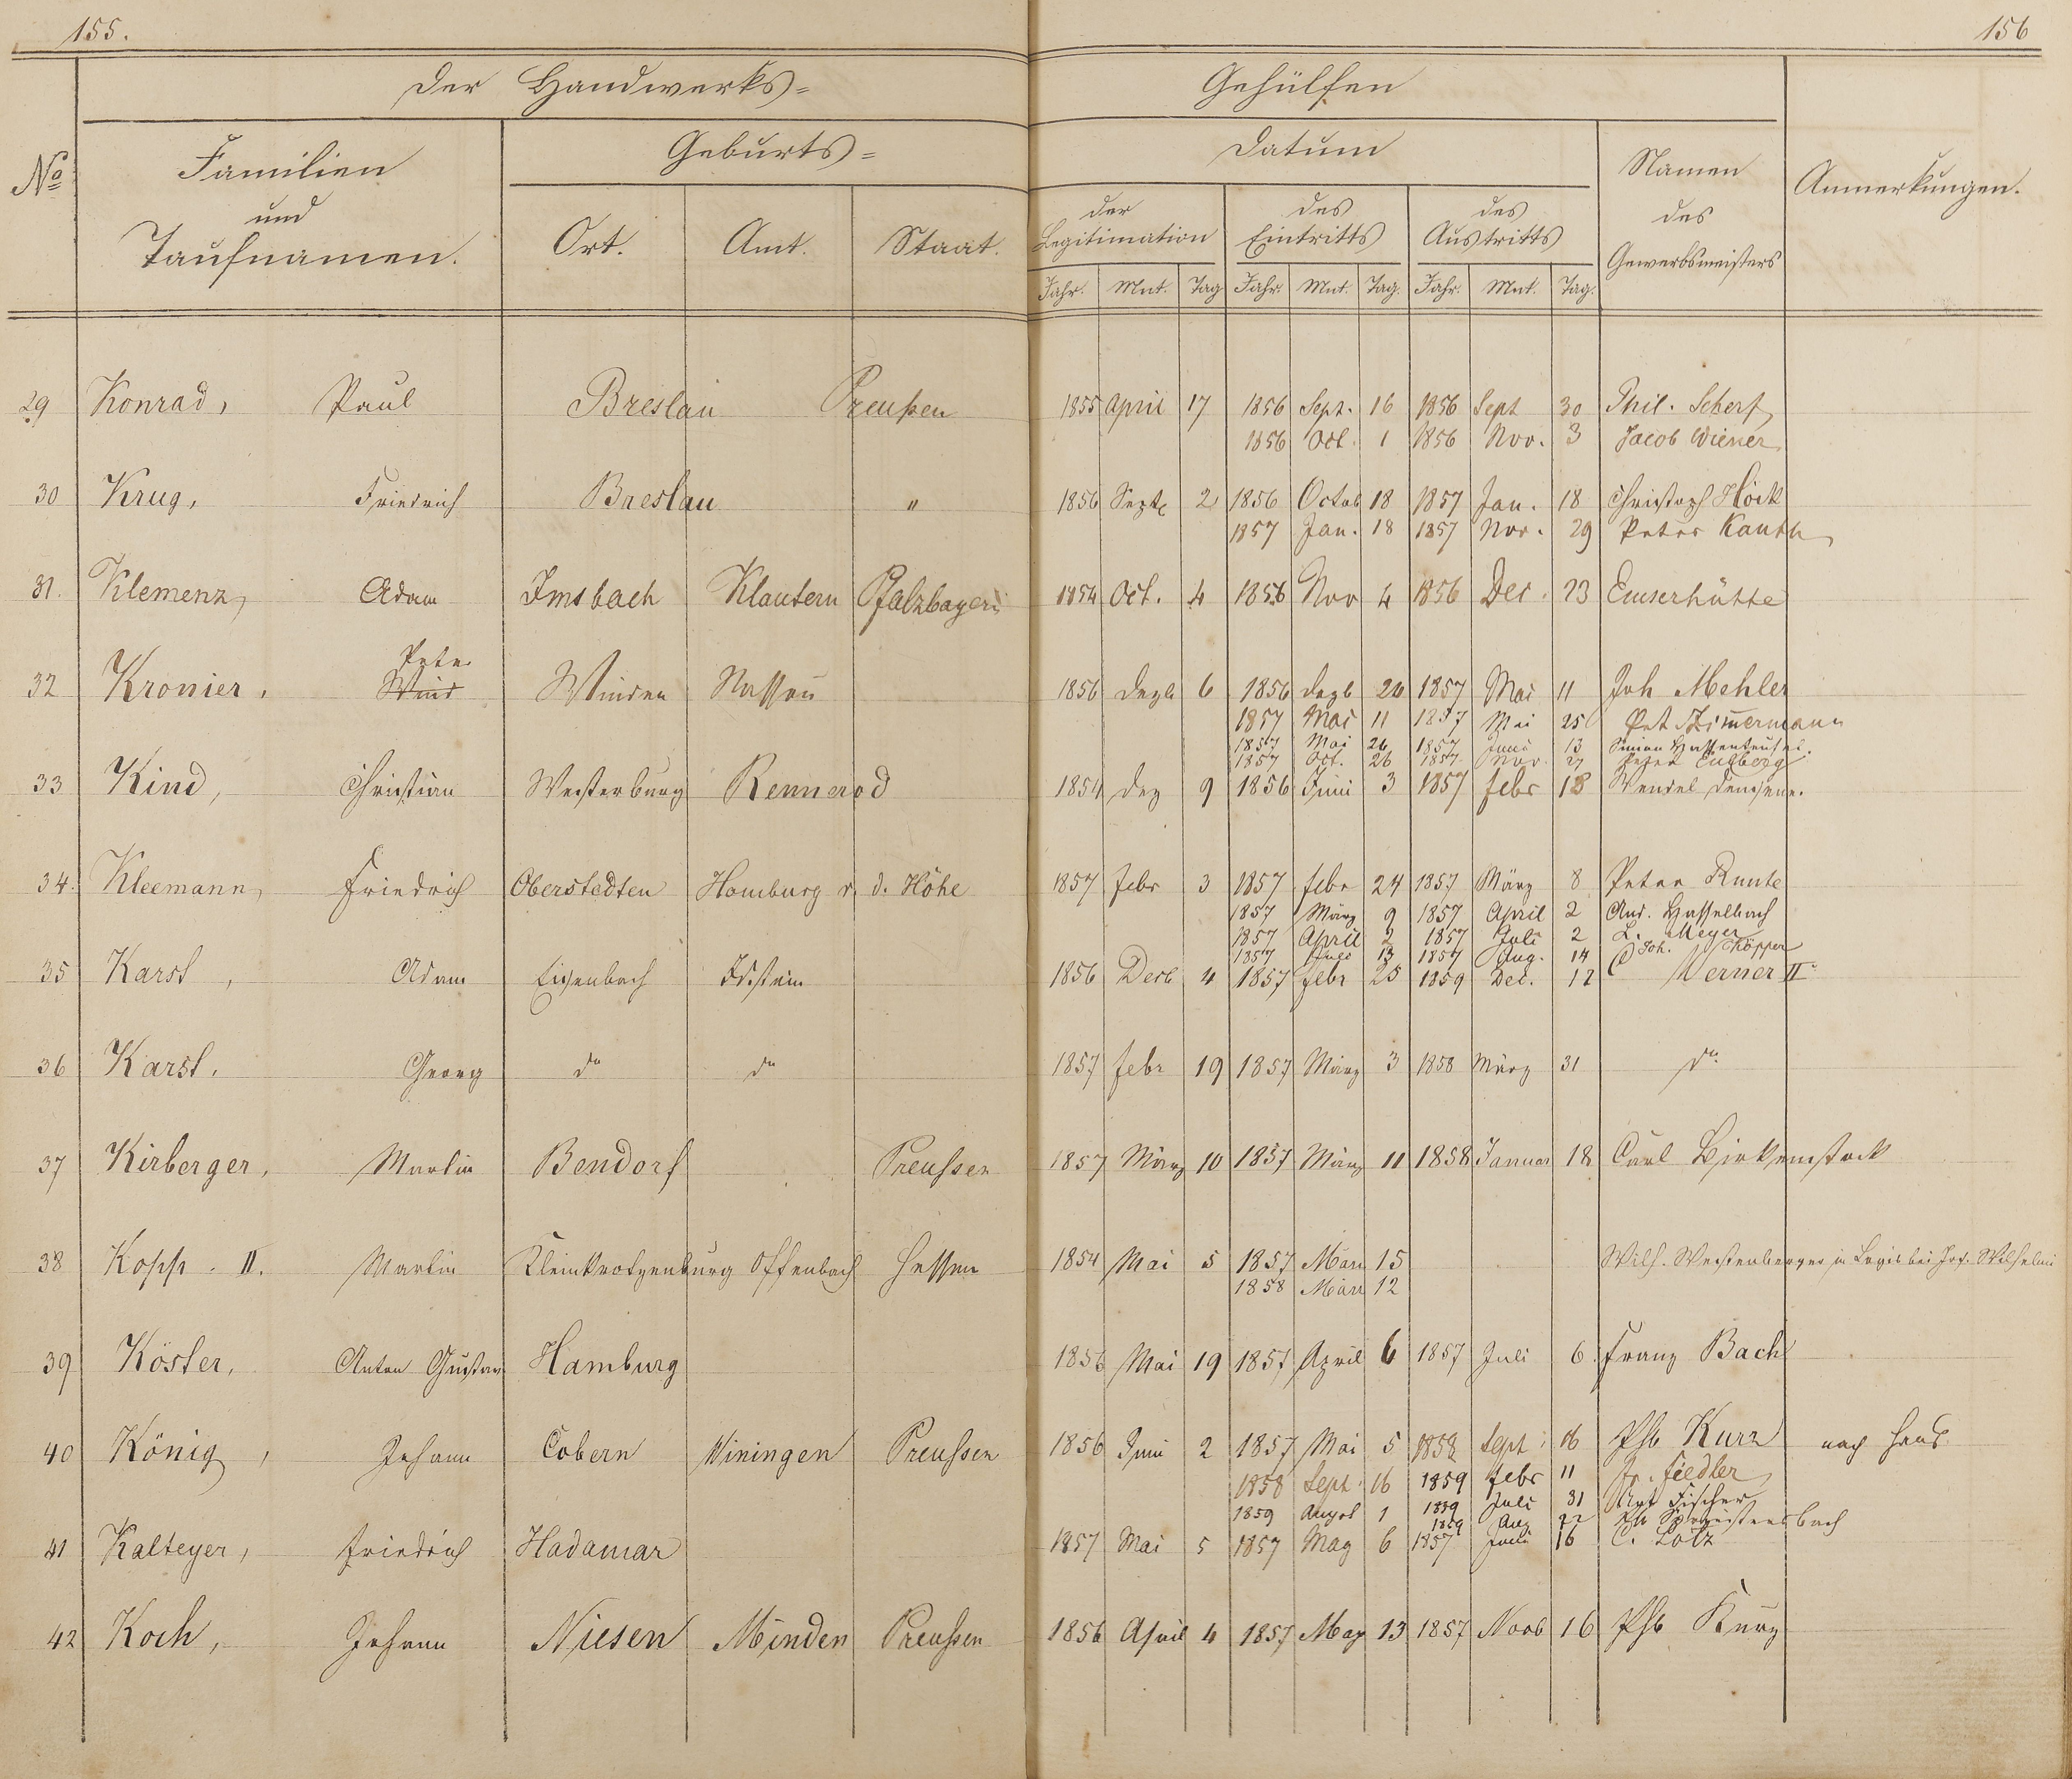 155.
156
Der Handwerks=
Gehülfen
No
Familien
und
Taufnamen.
Geburts=
Ort. Amt. Staat.
Datum
der Legitimation
des Eintritts
des Austritts
Namen
des
Gewerbsmeisters
Anmerkungen.
Jahr. Mnt. Tag Jahr. Mnt. Tag. Jahr. Mnt. Tag.
29 Konrad, Paul Breslau Preußen 1855 April 17 1856 Sept. 16 1856 Sept 30 Phil. Scherf
1856 Oct. 1 1856 Nov. 3 Jacob Wiener
30 Krug, Friedrich Breslau " 1856 Sept 2 1856 Octob 18 1857 Jan. 18 Christoph Höck
1857 Jan. 18 1857 Nov. 29 Peter Kauth
31. Klemenz, Adam Imsbach Klautern Pfalzbayern 1854 Oct. 4 1856 Nov 4 1856 Dec. 23 Emserhütte
Peter
32 Kronier, Wind Winden Nassau 1856 Dezb 6 1856 Dezb 26 1857 Mai 11 Joh Mehler
1857 Mai 11 1857 Mai 25 Pet Zimmermann
1857 Mai 26 1857 Juni 13 Simon
1857 Oct. 26 1857 Nov. 27 Peter
33 Kind, Christian Westerburg Rennerod 1854 Dez 9 1856 Juni 3 1857 Febr 18 Wendel
34. Kleemann, Friedrich Oberstedten Homburg v. d. Höhe 1857 Febr 3 1857 Febr 24 1857 März 8 Peter Runte
1857 März 9 1857 April 2 And. Hasselbach
1857 April 2 1857 Juli 2 L. Meyer
1857 Juli 13 1857 Aug. 14 Joh. Köpper
35 Karst, Adam Eisenbach Idstein 1856 Decb 4 1857 Febr 25 1859 Dec. 12 Werner II
36 Karst, Georg do do 1857 Febr 19 1857 März 3 1858 März 31 do
37 Kirberger, Martin Bendorf Preussen 1857 März 10 1857 März 11 1858 Januar 18 Carl Birkenstock
38 Kopp. II. Martin Kleinkrotzenburg Offenbach Hessen 1854 Mai 5 1857 März 15 Wilh. Westenberger in Logis bei Jos. Wilhelmi
1858 März 12
39 Köster, Anton Gustav Hamburg 1856 Mai 19 1857 April 6 1857 Juli 6 Franz Bach
40 König, Johann Cobern Winingen Preussen 1856 Juni 2 1857 Mai 5 1858 Sept. 16 Phl Kurz nach Haus
1858 Sept. 16 1859 Febr 11 Fr. Fiedler
1859 1 1859 Juli 31 Fischer
1859 Aug 22
41 Kalteyer, Friedrich Hadamar 1857 Mai 5 1857 May 6 1857 Juli 16 C. Lotz
42 Koch, Johann Niesen Minden Preussen 1856 April 4 1857 May 13 1857 Novb 16 Phl Kurz